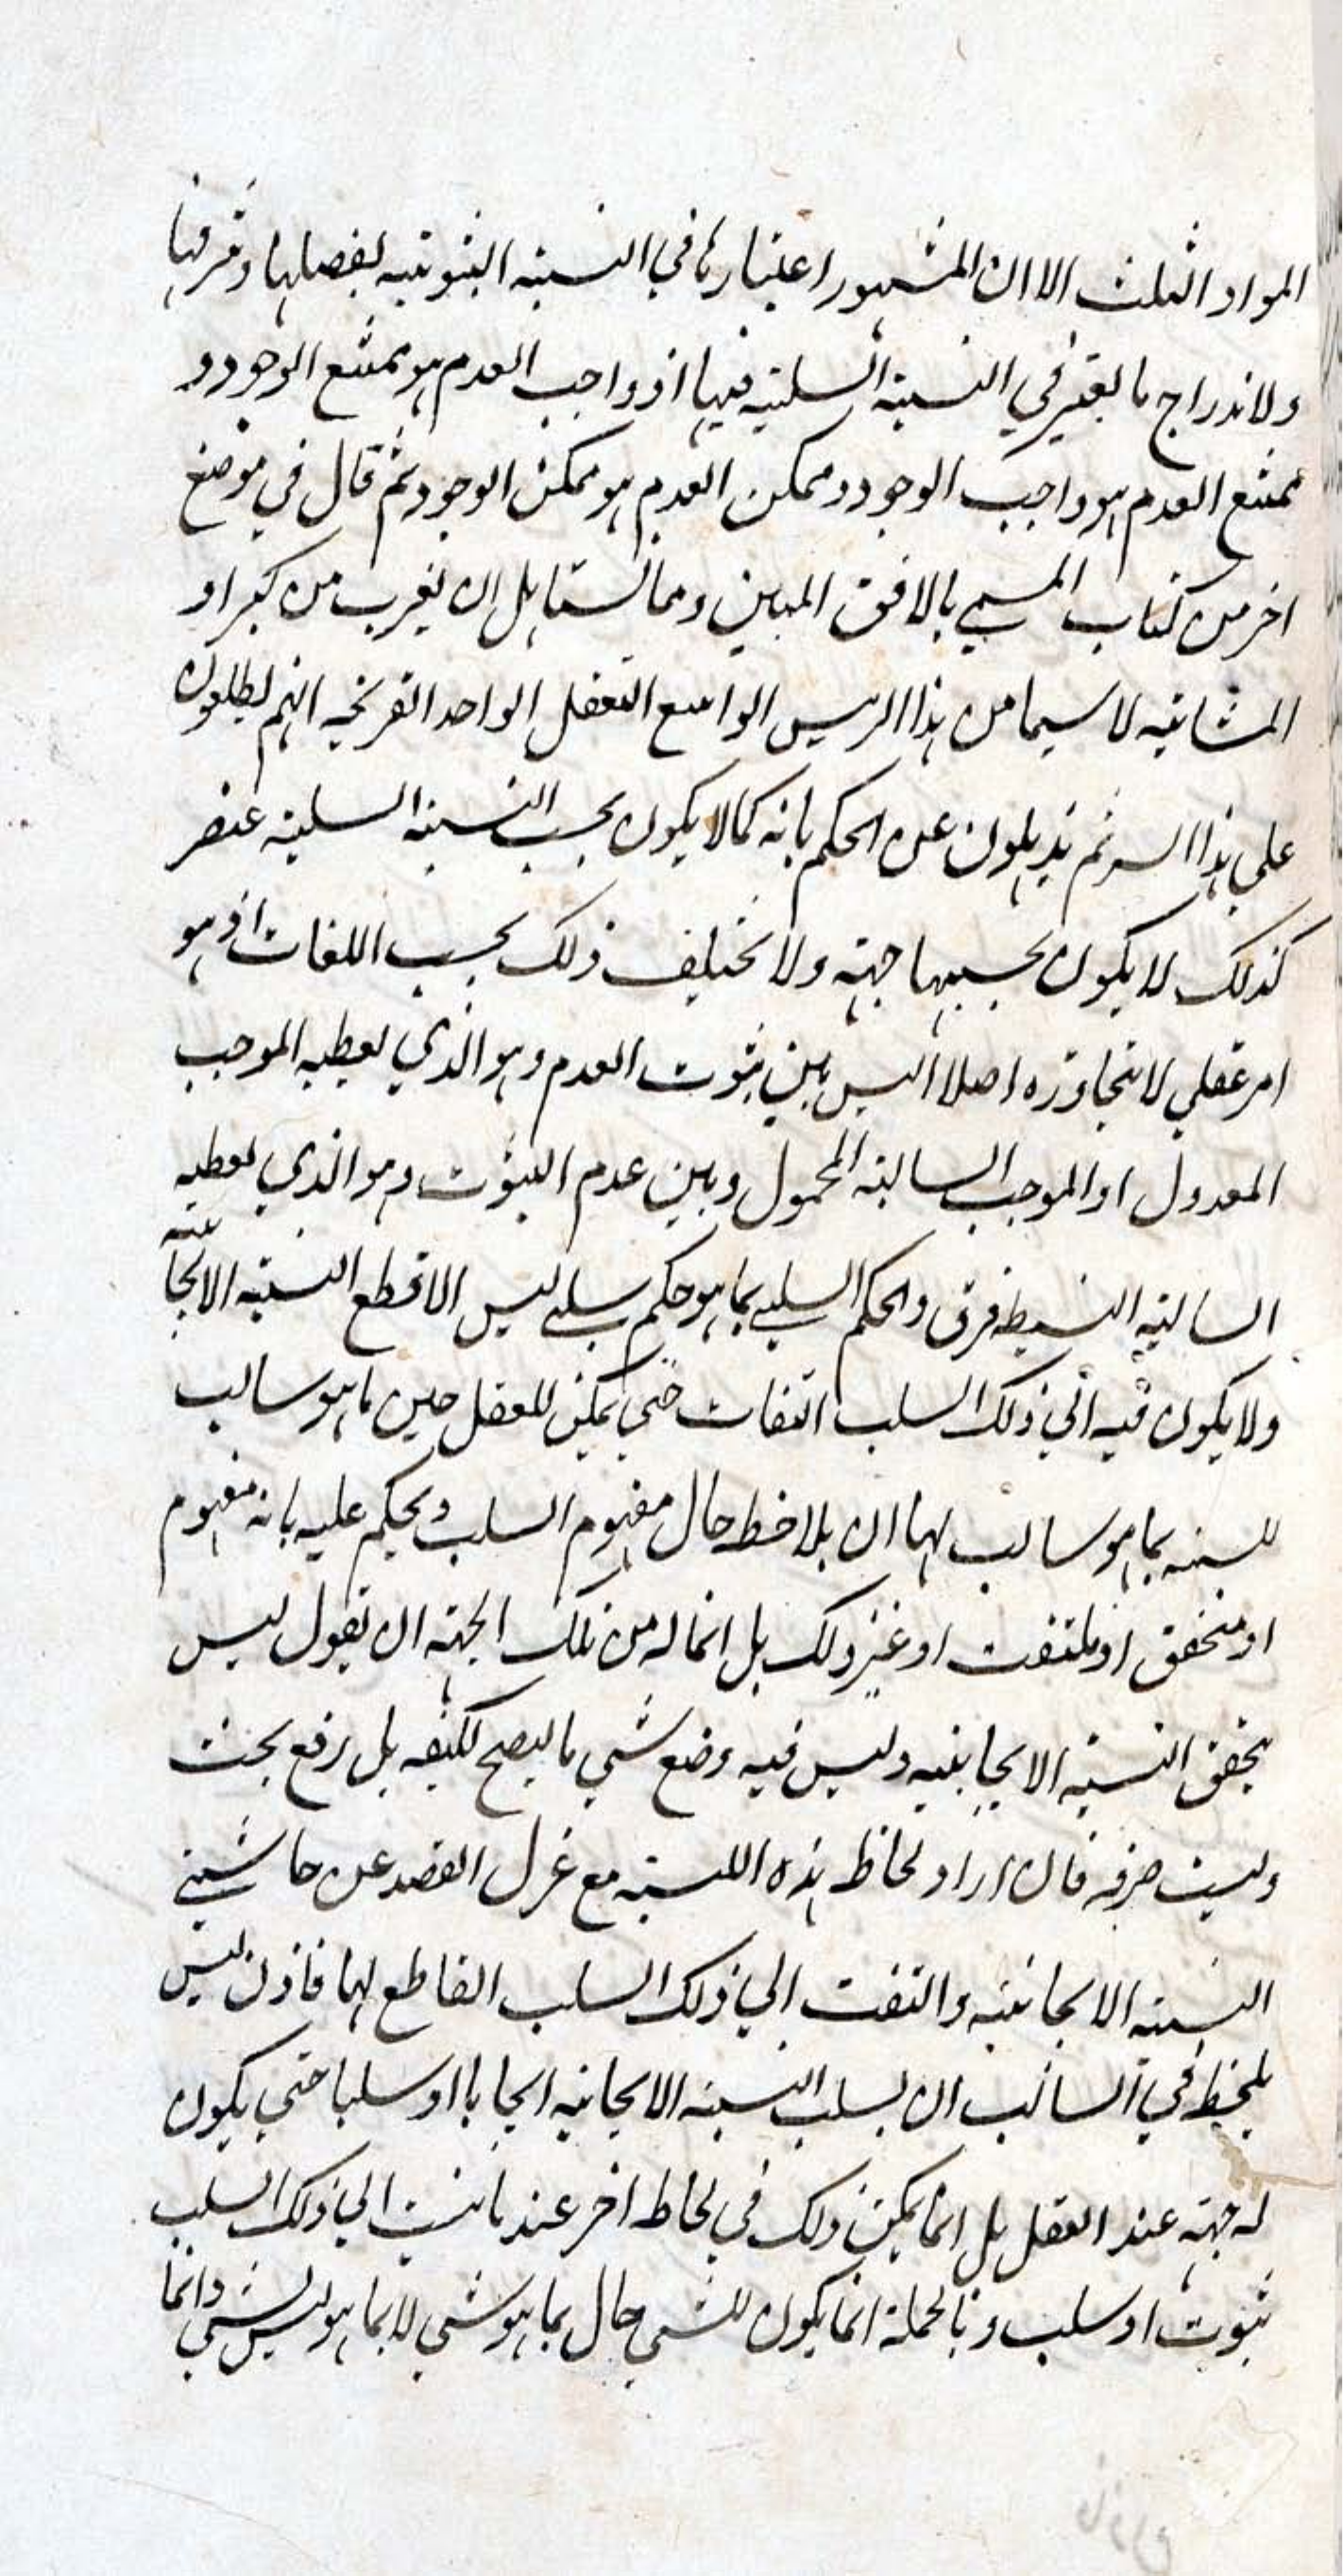 المواد الثلث الا ان المشهور اعتبارها في النسبة الثبوتيه لفضلها وشرفها
ولاندراج ما يعتبر في النسبة السلبيه فيها اذ واجب العدم هو ممتنع الوجود و
ممتنع العدم هو واجب الوجود وممكن العدم هو ممكن الوجود ثم قال في موضع
اخر من كتاب المسمي بالافق المبين ومما يستاهل ان يغرب من كبراء
المشائيه لا سيما من هذا الريس الواسع التعقل الواحد القريحه انهم يطلعون
علي هذا السر ثم يذهلون عن الحكم بانه كما لا يكون بحسب النسبة السلبية عنصر
كذلك لا يكون بحسبها جهة ولا يختلف ذلك بحسب اللغات اذ هو
امر عقلي لا يتجاوزه اصلا اليس بين ثبوت العدم وهو الذي يعطيه الموجب
المعدول او الموجب السالبة المحمول وبين عدم الثبوت وهو الذي يعطيه
السالبة البسيطه فرق والحكم السلبي بما هو حكم سلبي ليس الا قطع النسبة الايجابية
ولا يكون فيه الي ذلك السلب التفات حتي يمكن للعقل حين ما هو سالب
للنسبه بما هو سالب لها ان يلاحظ حال مفهوم السلب ويحكم عليه بانه مفهوم
او متحقق او ملتفت او غير ذلك بل انما له من تلك الجهة ان يقول ليس
يتحقق النسبة الايجابيه وليس فيه وضع شي ما ليصح تكيفه بل رفع بحت
وليت صرفه فان اراد لحاظ هذه النسبة مع عزل القصد عن حاشيتي
النسبة الايجابيه والتفت الي ذلك السلب القاطع لها فاذن ليس
يلحظ في السالب ان لسلب النسبة الايجابيه ايجابا او سلبا حتي يكون
له جهة عند العقل بل انما يمكن ذلك في لحاظ اخر عند ما نسبت الي ذلك السلب
ثبوت او سلب وبالجملة انما يكون للشي حال بما هو شي لا بما هو ليس بشي وانما